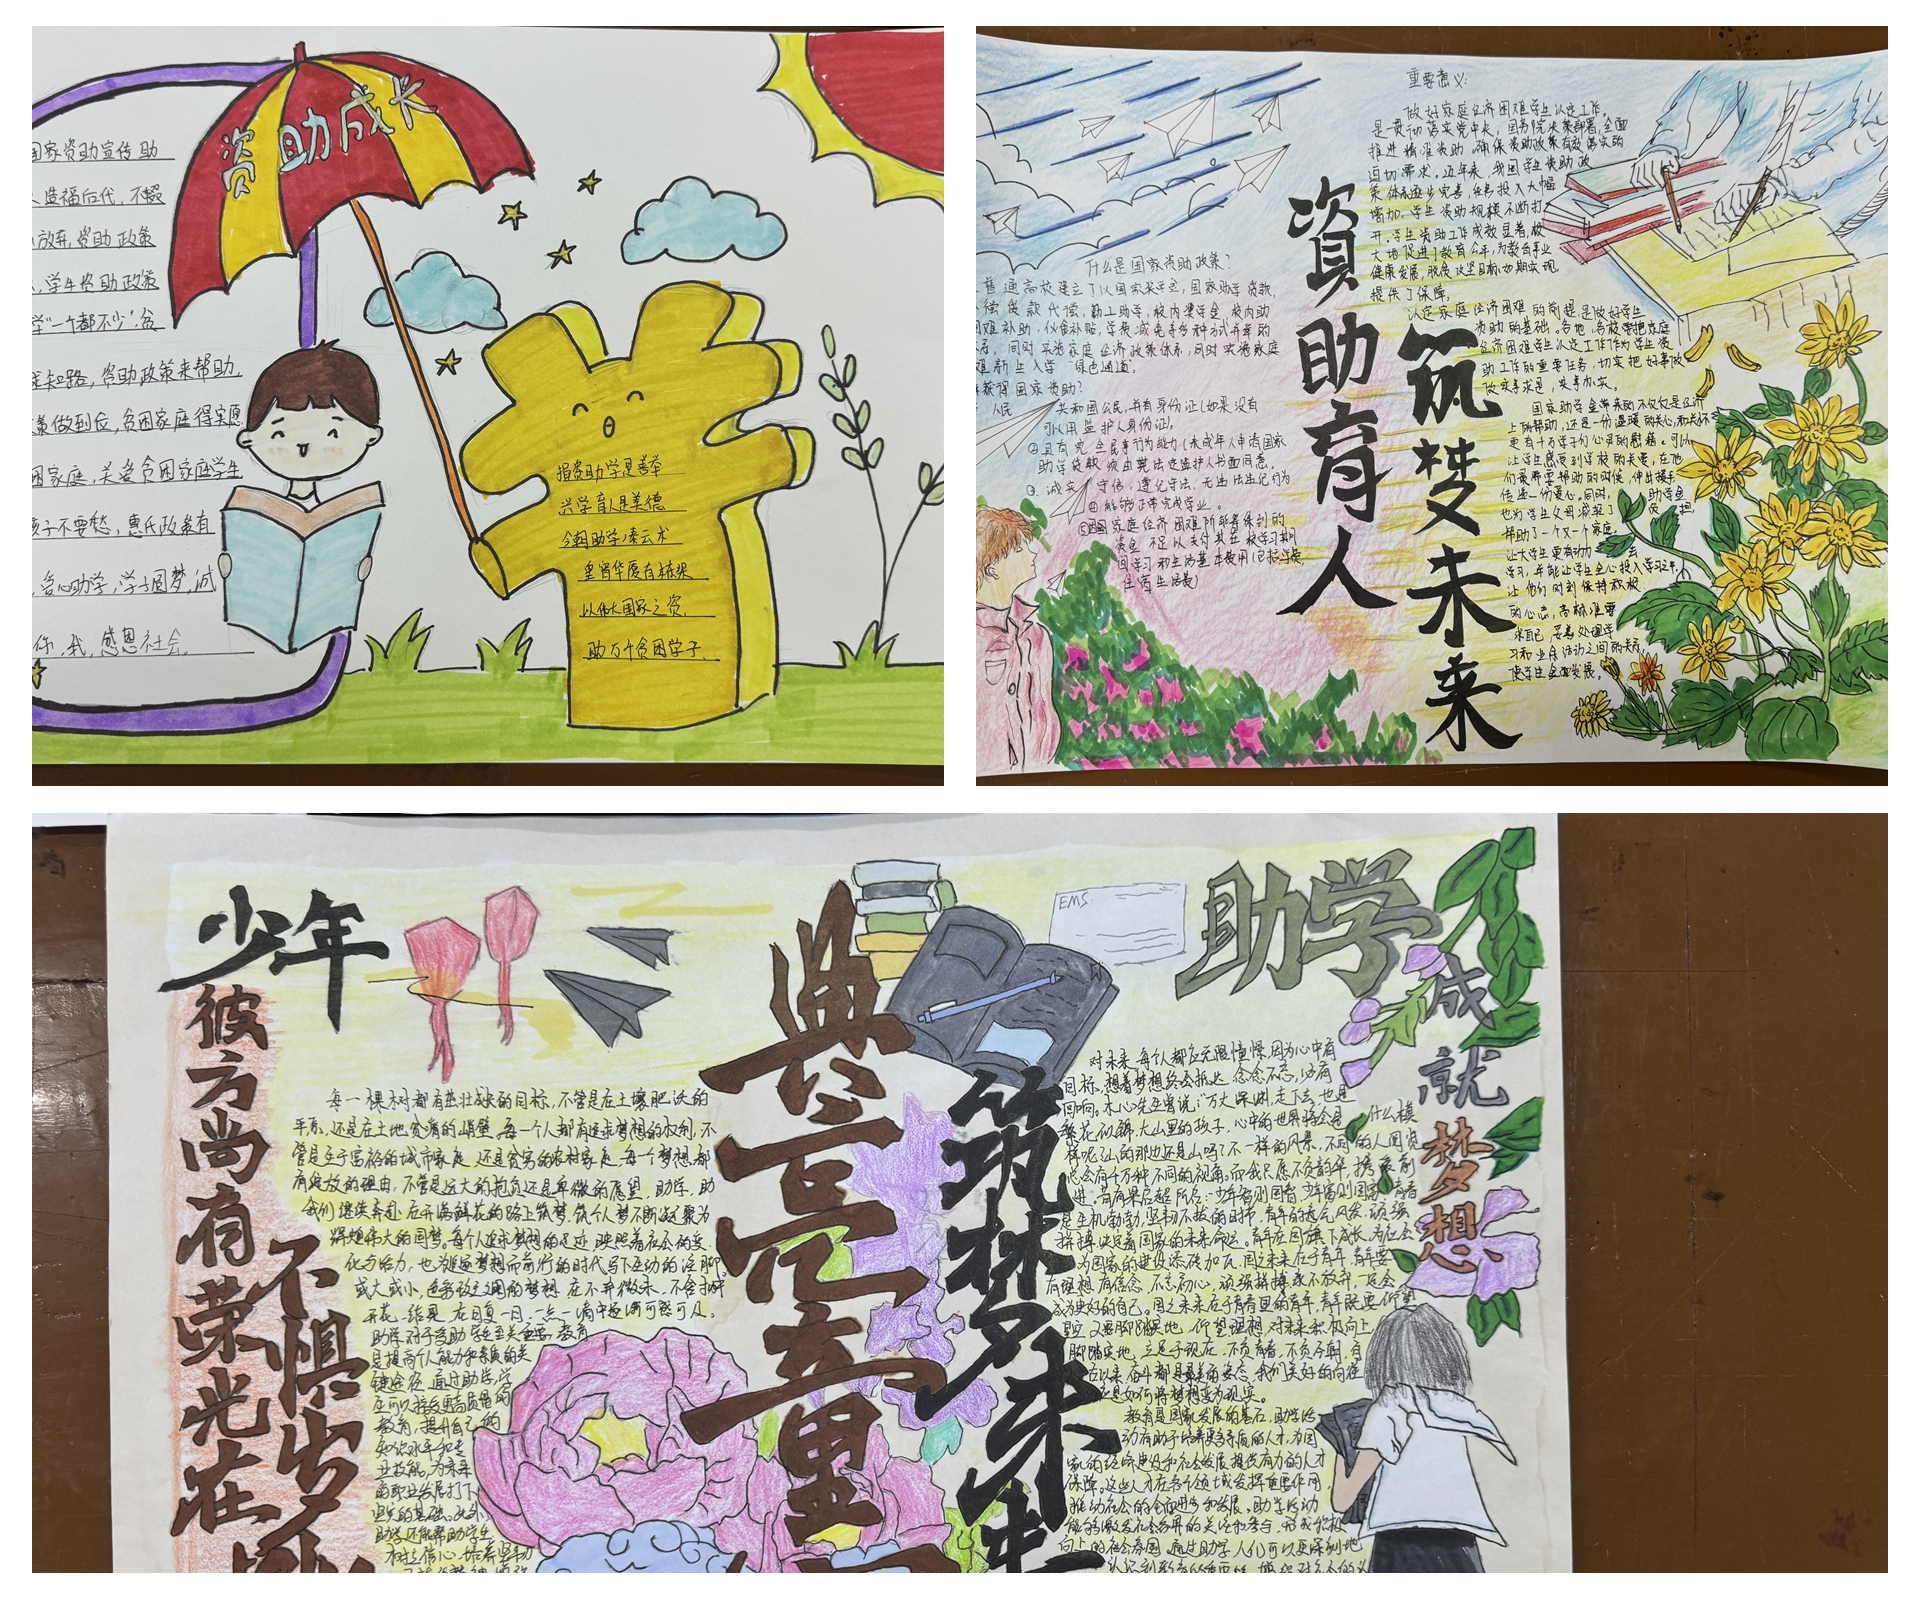 资助成长
国家资助宣传助
造福后代,不
放弃,资助政策
学生资助政策
学"一个都不少"贫
知路,资助政策来帮助,
做到位,贫困家庭得实惠
困家庭,关爱贫困家庭学生
孩子不要愁,惠民政策有
助学,学子圆梦,诚
你,我,感恩社会。
捐资助学是善举
兴学育人是美德
今朝助学凌云木
皇宫华厦有栋梁
以伟大国家之资,
助万千贫困学子.
資助育人
筑梦未来
什么是国家资助政策?
普通高校建立了以国家奖学金,国家助学贷款,
偿贷款代偿,勤工助学,校内奖学金,校内助
难补助,伙食补贴,学费减免等多种方式并举的
同时实施家庭经济政策体系,同时实施家庭
难新生入学"绿色通道"。
获得国家资助?
人民共和国公民,并有身份证(如果没有
可以用监护人身份证)。
②具有完全民事行为能力(未成年人申请国家
助学贷款须由其法定监护人书面同意。
③诚实守信,遵纪守法,无违法违纪行为
④能够正常完成学业。
⑤因家庭经济困难所能得到的
资金不足以支付其在校学习期
间学习和生活基本费用(包括学费,
住宿生活费)
重要意义:
做好家庭经济困难学生认定工作,
是贯彻落实党中央,国务院决策部署,全面
推进精准资助,确保资助政策有效落实的
迫切需求。近年来,我国学生资助政
策体系逐步完善,经费投入大幅
增加,学生资助规模不断扩
开,学生资助工作成效显著,极
大地促进了教育公平,为教育事业
健康发展,脱贫攻坚目标如期实现,
提供了保障,
认定家庭经济困难的前提是做好学生
资助的基础。各地,各校要把家庭
经济困难学生认定工作作为学生资
助工作的重要任务,切实把好事做
做实事求是,实事办实。
国家助学金带来的不仅仅是经济
上的帮助,还是一份温暖的关心,和关怀
更有千万学子们心灵的慰藉。可以
让学生感受到学校的关爱,在他
们最需要帮助的时候,伸出援手
传递一份爱心。同时,助学金
也为学生父母减轻了负担,
帮助了一个又一个家庭,
让大学生更有动力去
学习,并能让学生全心投入学习之中,
让他们时刻保持积极
的心态,高标准要
求自己,妥善处理学
习和业余活动之间的关系,
使学生全面发展。
少年
彼方尚有荣光在
不惧岁
典亮童
筑梦未
EMS
助学
成就梦想
每一棵树都有茁壮成长的目标,不管是在土壤肥沃的
平原,还是在土地贫瘠的峭壁。每一个人都有追求梦想的权利,不
管是生于富裕的城市家庭,还是贫穷的农村家庭,每一个梦想都
有绽放的理由,不管是远大的抱负还是卑微的愿望,助学,助
我们继续奔赴,在开满鲜花的路上筑梦,筑个人梦不断凝聚为
辉煌伟大的国梦。每个人追求梦想的足迹,映照着社会的变
化与活力,也为追逐梦想而前行的时代写下生动的注脚
或大或小,色彩
开花,结果,在日复一日,一点一滴中
助学对于受助学生至关重要,教育
是提高个人能力和素质的关
键途径,通过助学,学
生可以接受更高质量的
教育,提升自己的
知识水平和专
业技能,为未来
的职业发展打下
坚实的基础。此外,
助学还能帮助学生
树立信心,培养坚韧
对未来,每个人都应无限憧憬,因为心中有
目标,想着梦想终会抵达,念念不忘,必有
回响。木心先生曾说:"万丈深渊,走下去,也是
繁花似锦。大山里的孩子,心中的世界将会是什么模
样呢?山的那边还是山吗?不一样的风景,不同的人阅览
总会有千万种不同的视角。而我只愿不负韶华,携
进。昔有梁启超所言:"少年智则国智,少年富则国富,青春
是生机勃勃,坚韧不拔的目标,青年的
拼搏,决定着国家的未来命运。青年在国旗下成长,为社会
为国家的建设添砖加瓦。国之未来在于青年,青年要
有理想,有信念,不忘初心,顽强拼搏,永不放弃,定会
成为更好的自己。国之未来在于青春里的青年,青年既要仰望
星空,又要脚踏实地,仰望理想,对未来积极向上,
脚踏实地,立足于现在,不负青春,不负今朝,自
古以来,奋斗都是最美的姿态,我们美好的向往
是如何将梦想变为现实。
教育是国家发展的基石,助学活
动有助于培养更高素质的人才,为国
家的经济建设和社会发展提供有力的人才
保障。这些人才在各个领域发挥重要作用,
推动社会的全面进步和发展。助学活动
能够激发社会各界的关注和参与,形成积极
向上的社会氛围,通过助学,人们可以更深刻地
认识到教育的重要性